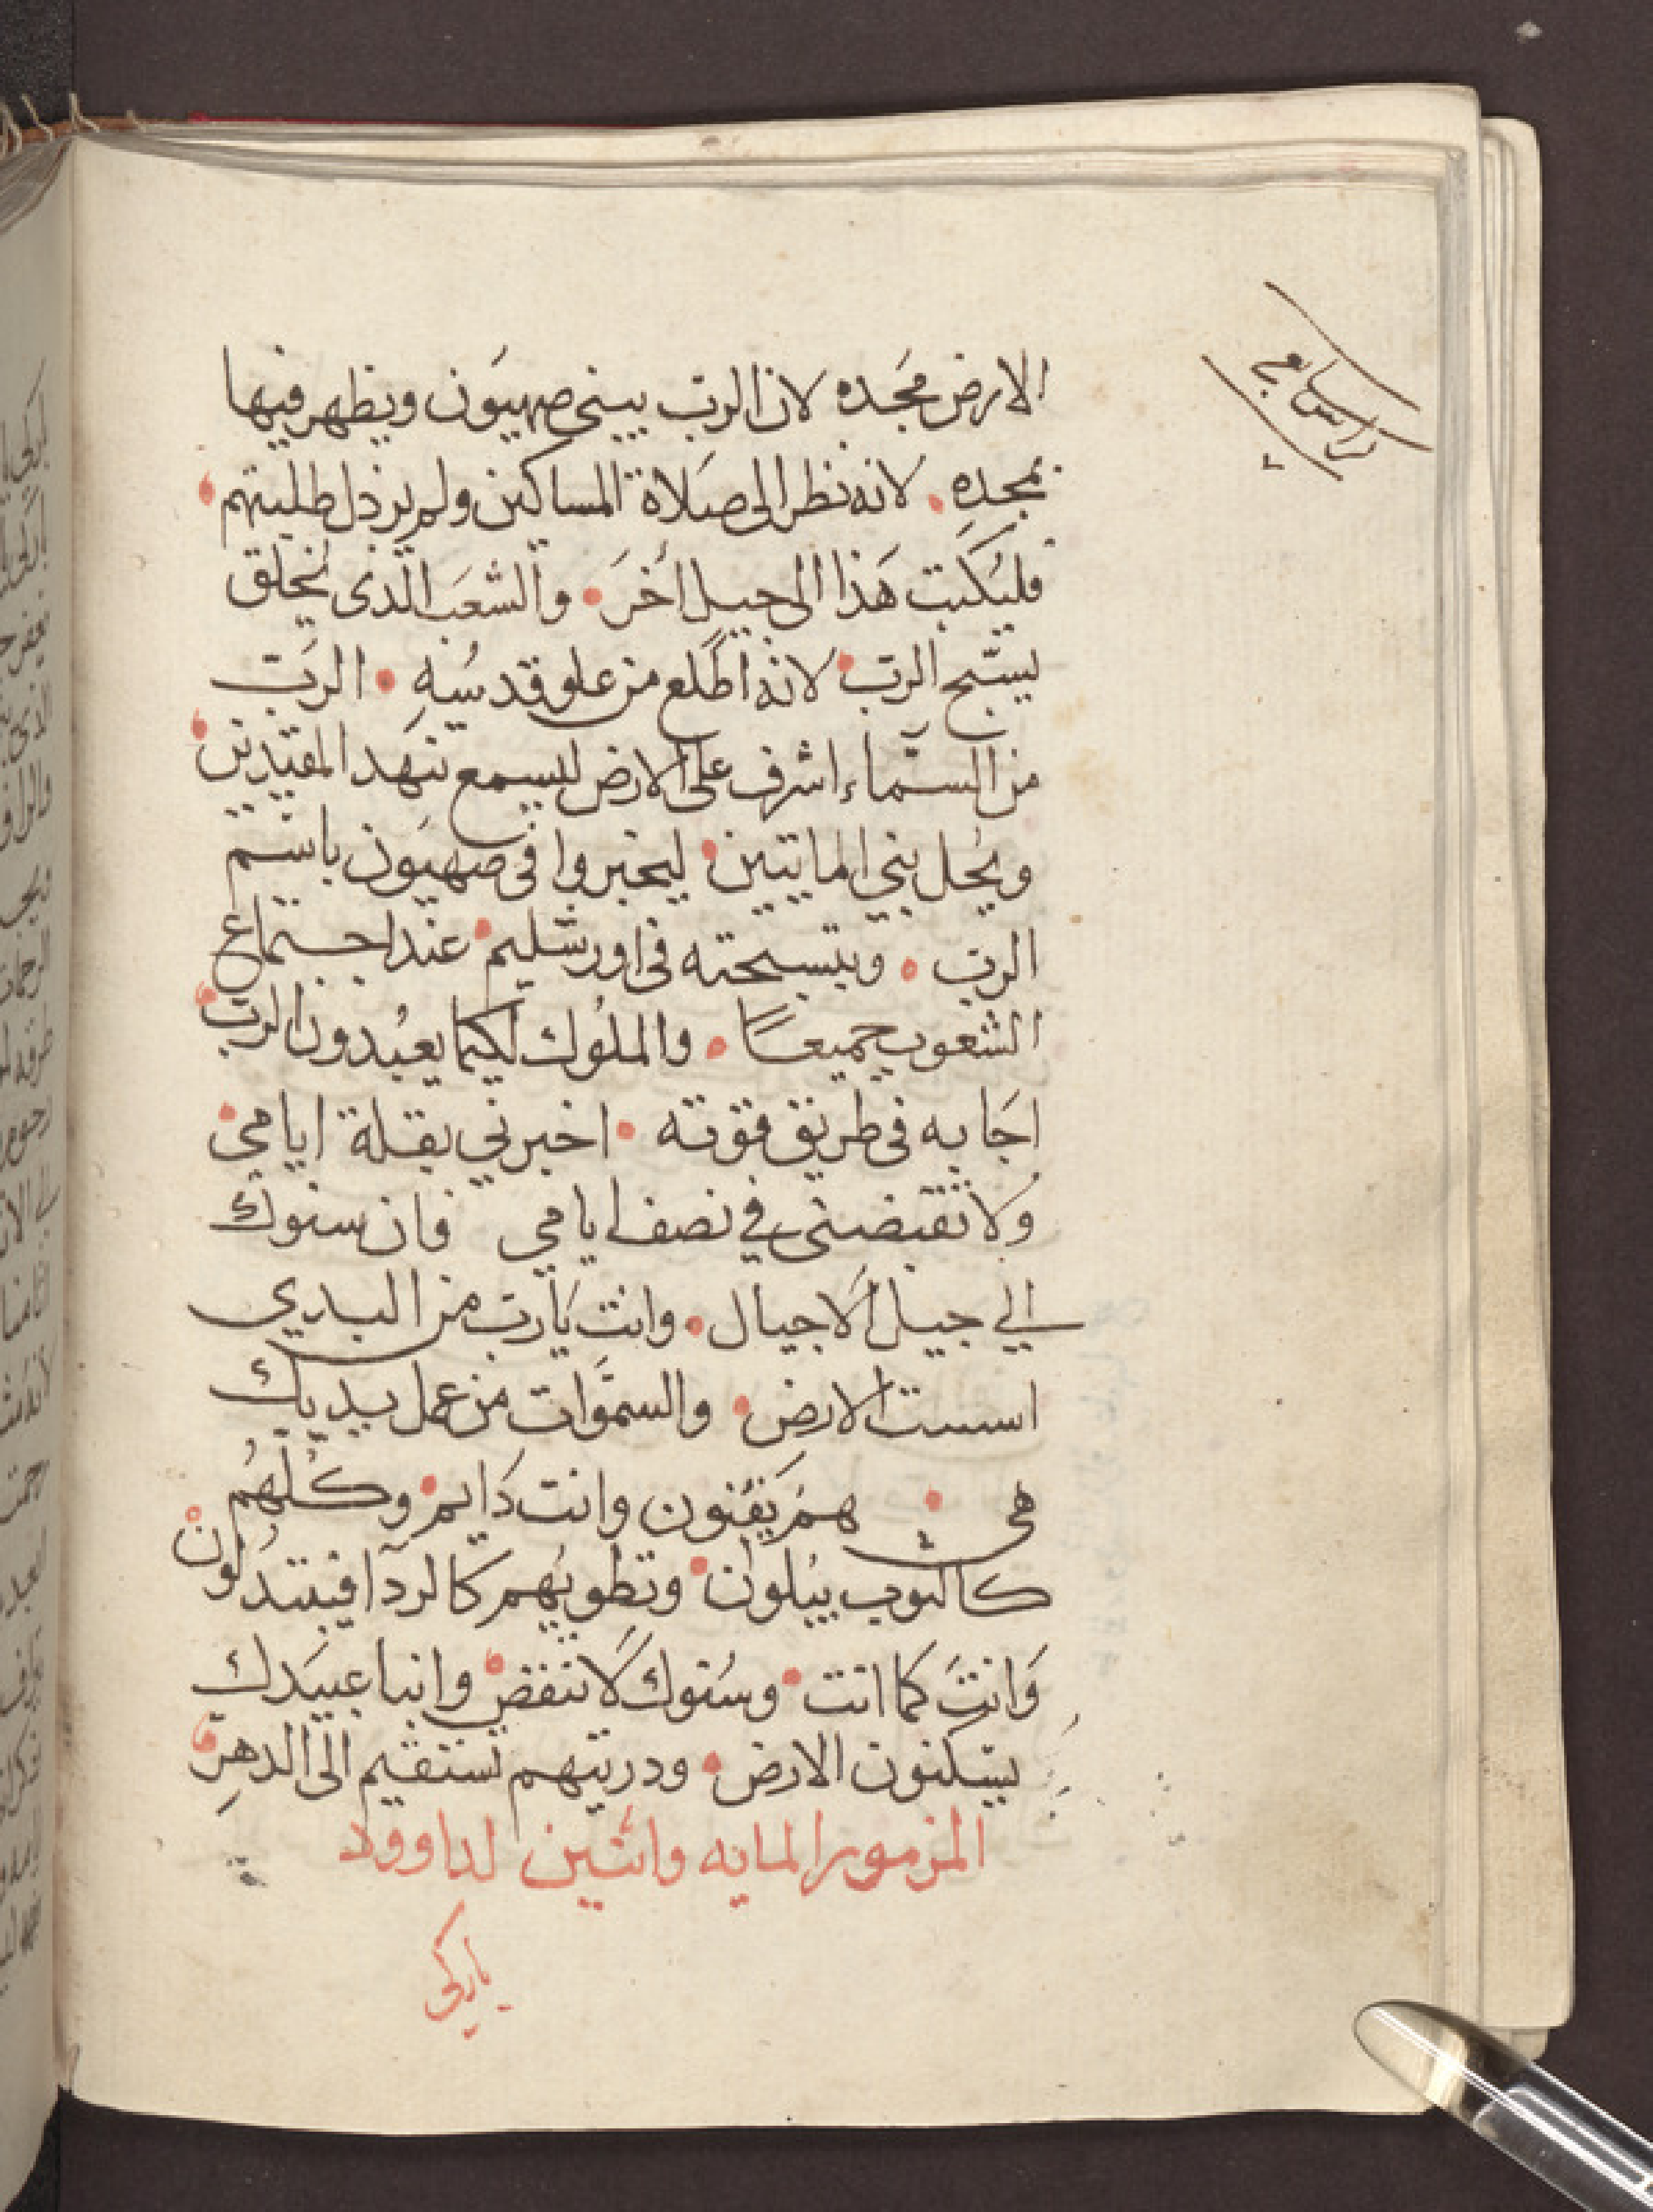 كراس سابع
الارض مجَده لان الرب يبني صهيَون ويظهر فيها
بمجدهِ. لانه نظر الى صَلاة المساكين ولم يرذل طلبتهم
فليُكتب هَذا الى جيل اخَرَ. والشعَب الذى يُخلق
ليسَبح الرب. لانهُ اطلع من علو قدسُهِ. الرَبَ
من السَّماء اشرف على الارض ليسمع تنهَد المقيَدين
ويُحل بني المايتين. ليخبروا فى صهيَون باسَم
الرب. وبتسبحته فى اورشليم. عند اجتماع
الشعوب جميعًا. والملُوك لكيما يعبُدون الرب
اجَابه فى طريق قوته. اخبرني بقلة ايامي
وُلا تقبضنى في نصف ايامي فان سنوك
الي جيل الاجيال. وانت يَارب من البدي
اسست الارض. والسمَوات من عمل يديك
هى. همَ يَفنون وانت دَايم. وكُلهُم
كالثوب يبُلون. وتطويهم كالردآ فيتبَدلُون
وَانتَ كما انت. وسُنوك لَا تنفض. وابنا عبيَدك
يسَكنون الارض. ودريتهم تستقيم الى الدهرِ.
المزمور المايه واثنين لداوود
باركى